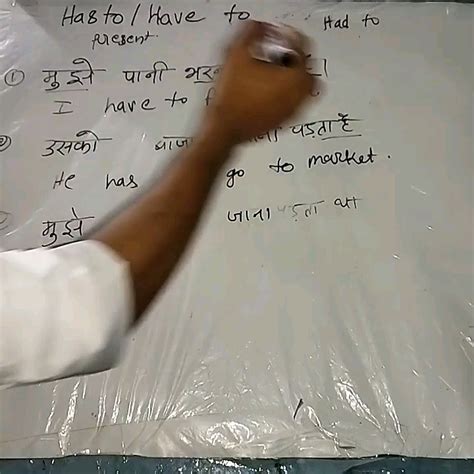 Has to / Have to Had to
present
① मुझे पानी
I have to
② उसको पड़ता है
He has go to market.
मुझे जाना पड़ता था